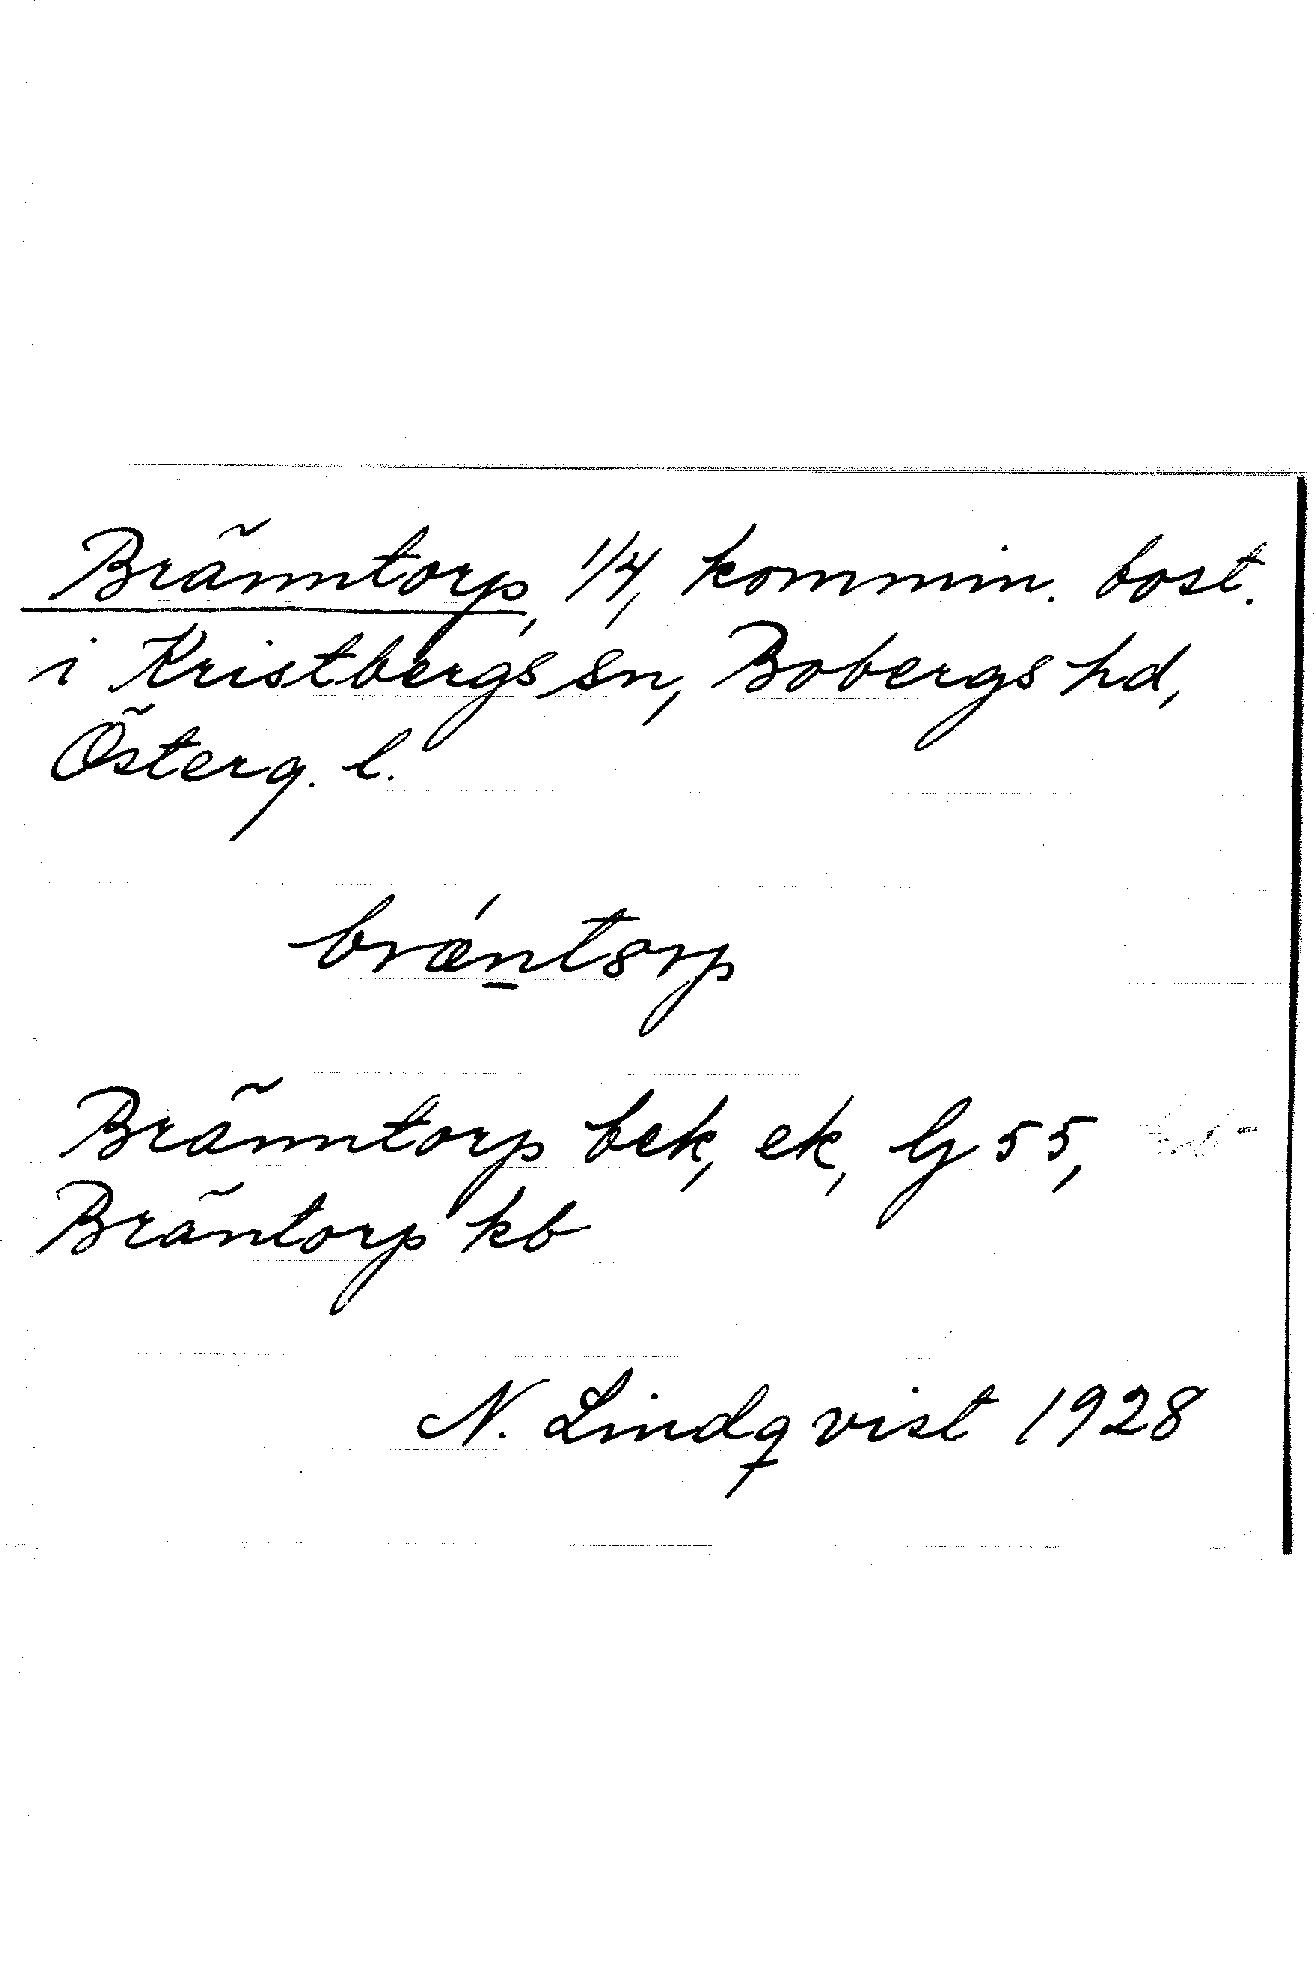 Bränntorp, 1/4, kommin. bost.
i Kristbergs sn, Bobergs hd,
Österg. l.
brǽn̠tɷrp
Bränntorp bek, ek, Gj 55,
Bräntorp kb
N. Lindqvist 1928